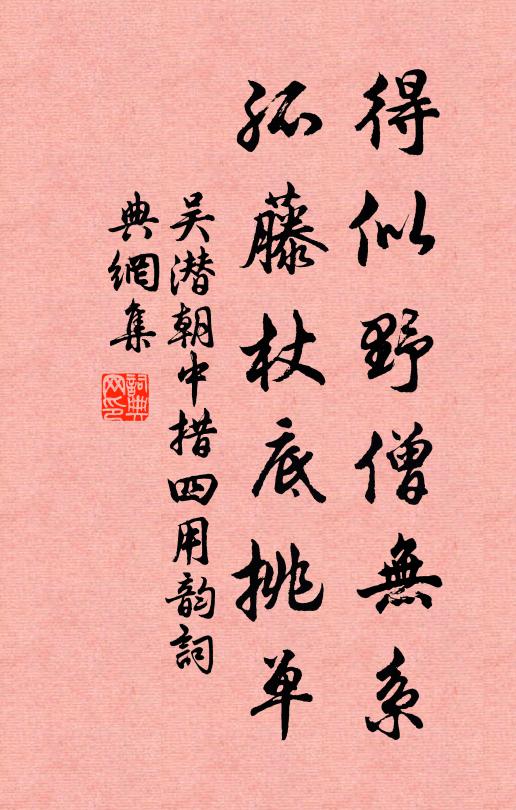 得似野僧無系
孤藤杖底挑单
吴潜朝中措四用韵詞
典網集
詞典網印